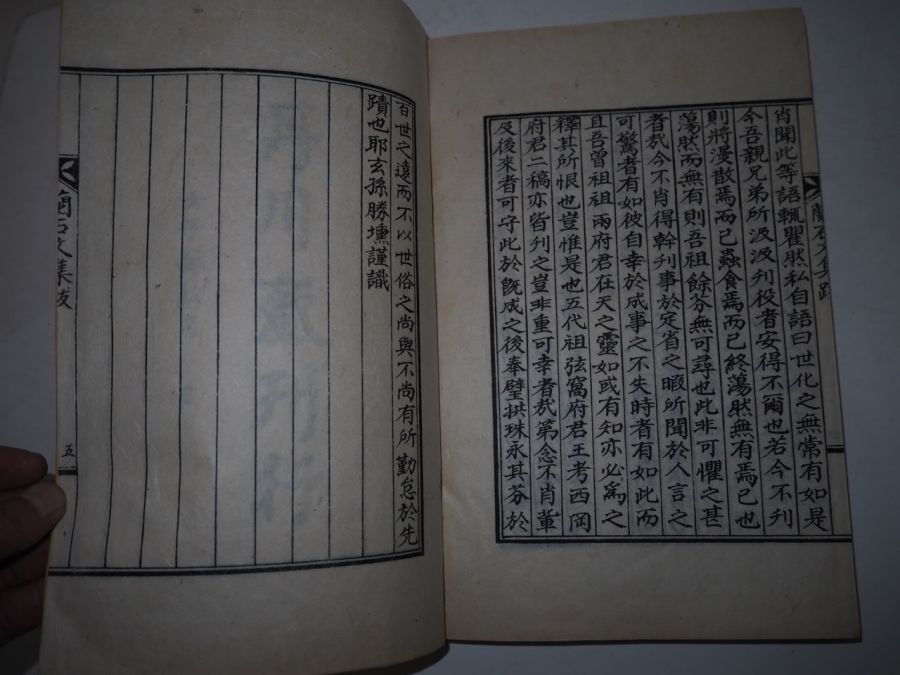 肖聞此等語輒瞿然私自語曰世化之無常有如是
今吾親兄弟所汲汲刊役者安得不爾也若今不刊
則將漫散焉而已蟲食焉而已終蕩然無有焉已也
蕩然而無有則吾祖餘芬無可尋也此非可懼之甚
者哉今不肖得幹刊事於定省之暇所聞於人言之
可驚者有如彼自幸於成事之不失時者有如此而
且吾曾祖祖兩府君在天之靈如或有知亦必爲之
釋其所恨也豈惟是也五代祖弦窩府君王考西岡
府君二稿亦皆刊之豈非重可幸者哉第念不肖輩
及後來者可守此於旣成之後奉璧拱珠永其芬於
百世之遠而不以世俗之尚與不尚有所勤怠於先
蹟也耶玄孫勝壎謹識
蘭石文集跋
五